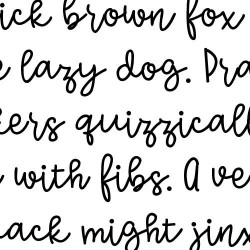 ick brown fox
lazy dog. Pra
kers quizzicall
with fibs. A ve
ack might jinx